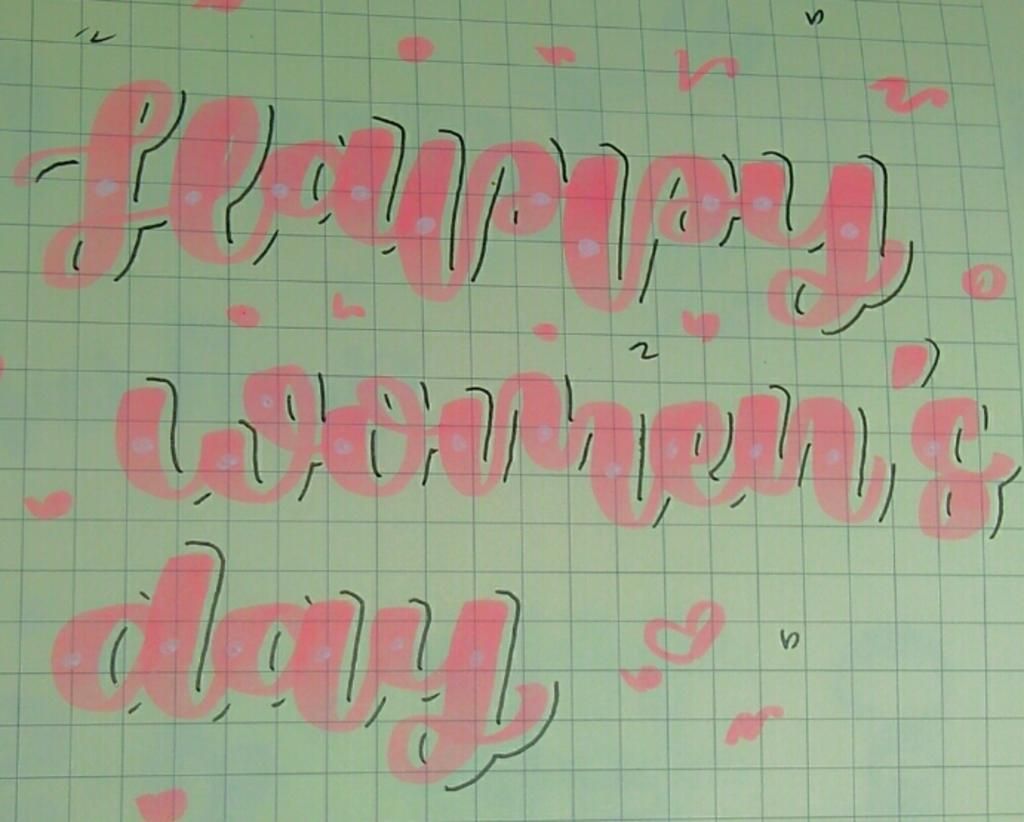 Happy
women's
day